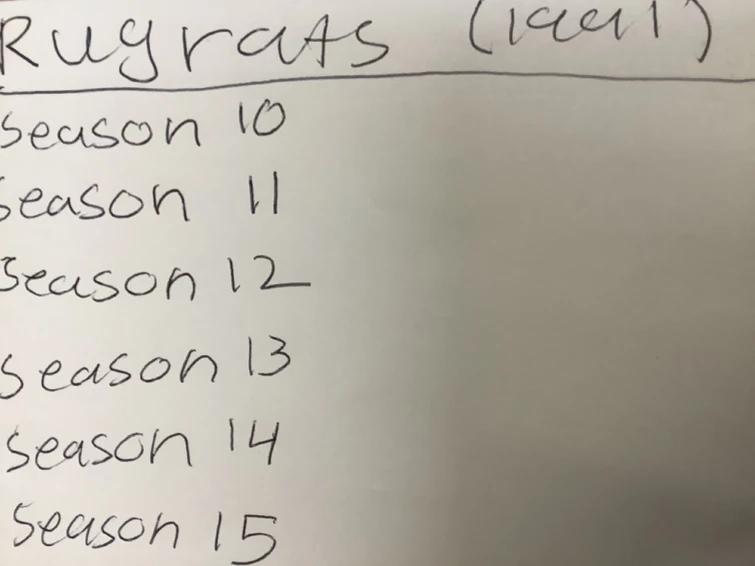 Rugrats (1991)
Season 10
Season 11
Season 12
Season 13
Season 14
Season 15